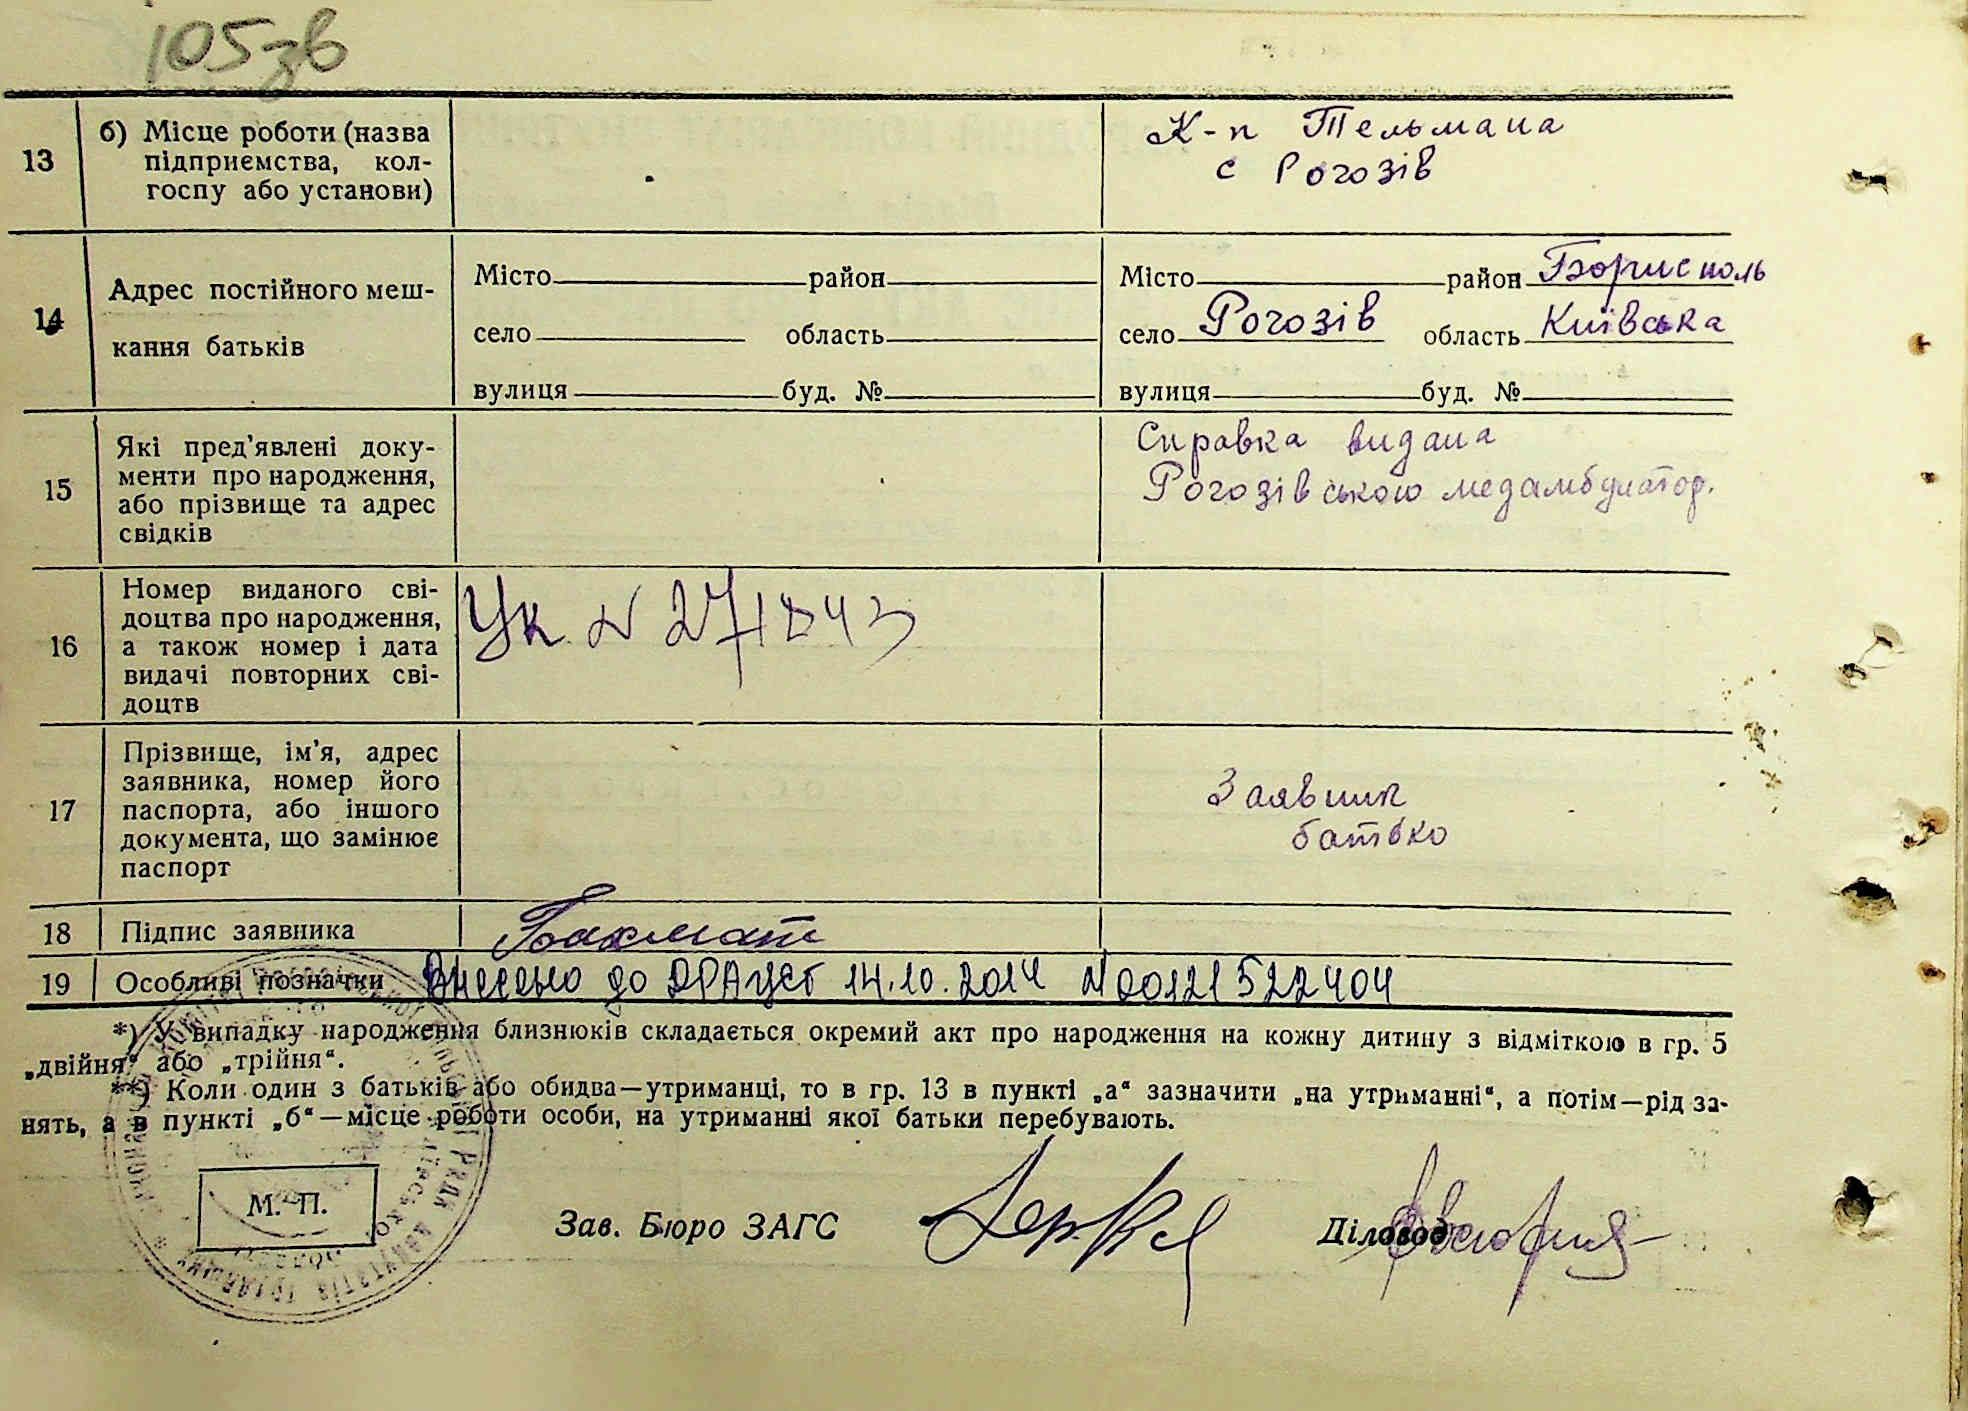 105зв
13
б) Місце роботи (назва
підприємства, кол-
госпу або установи)
К-п Тельмана
с Рогозів
14
Адрес постійного меш-
кання батьків
Місто район
село область
вулиця буд. №
Місто район Борисполь
село Рогозів область Київська
вулиця буд. №
15
Які пред'явлені доку-
менти про народження,
або прізвище та адрес
свідків
Справка видана
Рогозівською медамбулатор.
16
Номер виданого сві-
доцтва про народження,
а також номер і дата
видачі повторних сві-
доцтв
Ук N 271843
17
Прізвище, ім'я, адрес
заявника, номер його
паспорта, або іншого
документа, що замінює
паспорт
Заявник
батько
18 Підпис заявника Бахмат
19 Особливі позначки Внесено до ДРАЦСГ 14.10.2014 N00121522404
*) У випадку народження близнюків складається окремий акт про народження на кожну дитину з відміткою в гр. 5
„двійня" або „трійня".
**) Коли один з батьків або обидва—утриманці, то в гр. 13 в пункті „а" зазначити „на утриманні", а потім—рід за-
нять, а в пункті „б"—місце роботи особи, на утриманні якої батьки перебувають.
М. П.
Зав. Бюро ЗАГС
Діловод